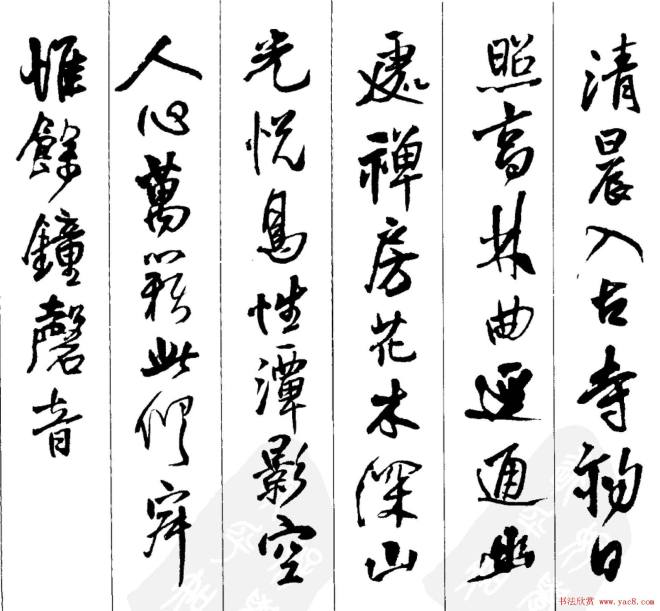 清晨入古寺初日
照高林曲逕通幽
處禪房花木深山
光悅鳥性潭影空
人心萬籟此俱寂
惟餘鐘磬音
书法欣赏 www.yac8.com